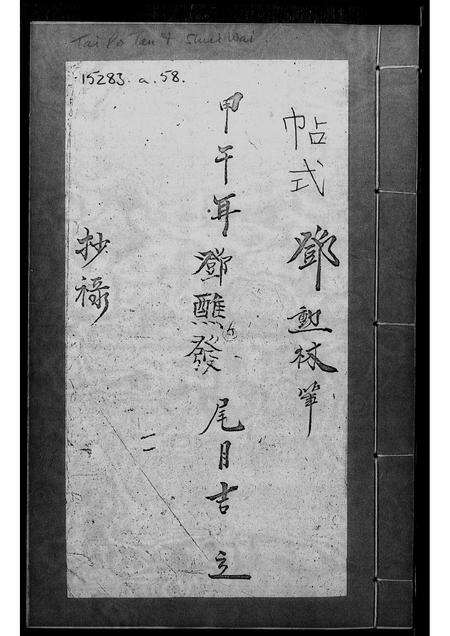 Tai Po Tau & Shui Wai
15283. a. 58.
帖式 鄧勳猷筆
甲午年 鄧醮發 尾月吉立
抄祿